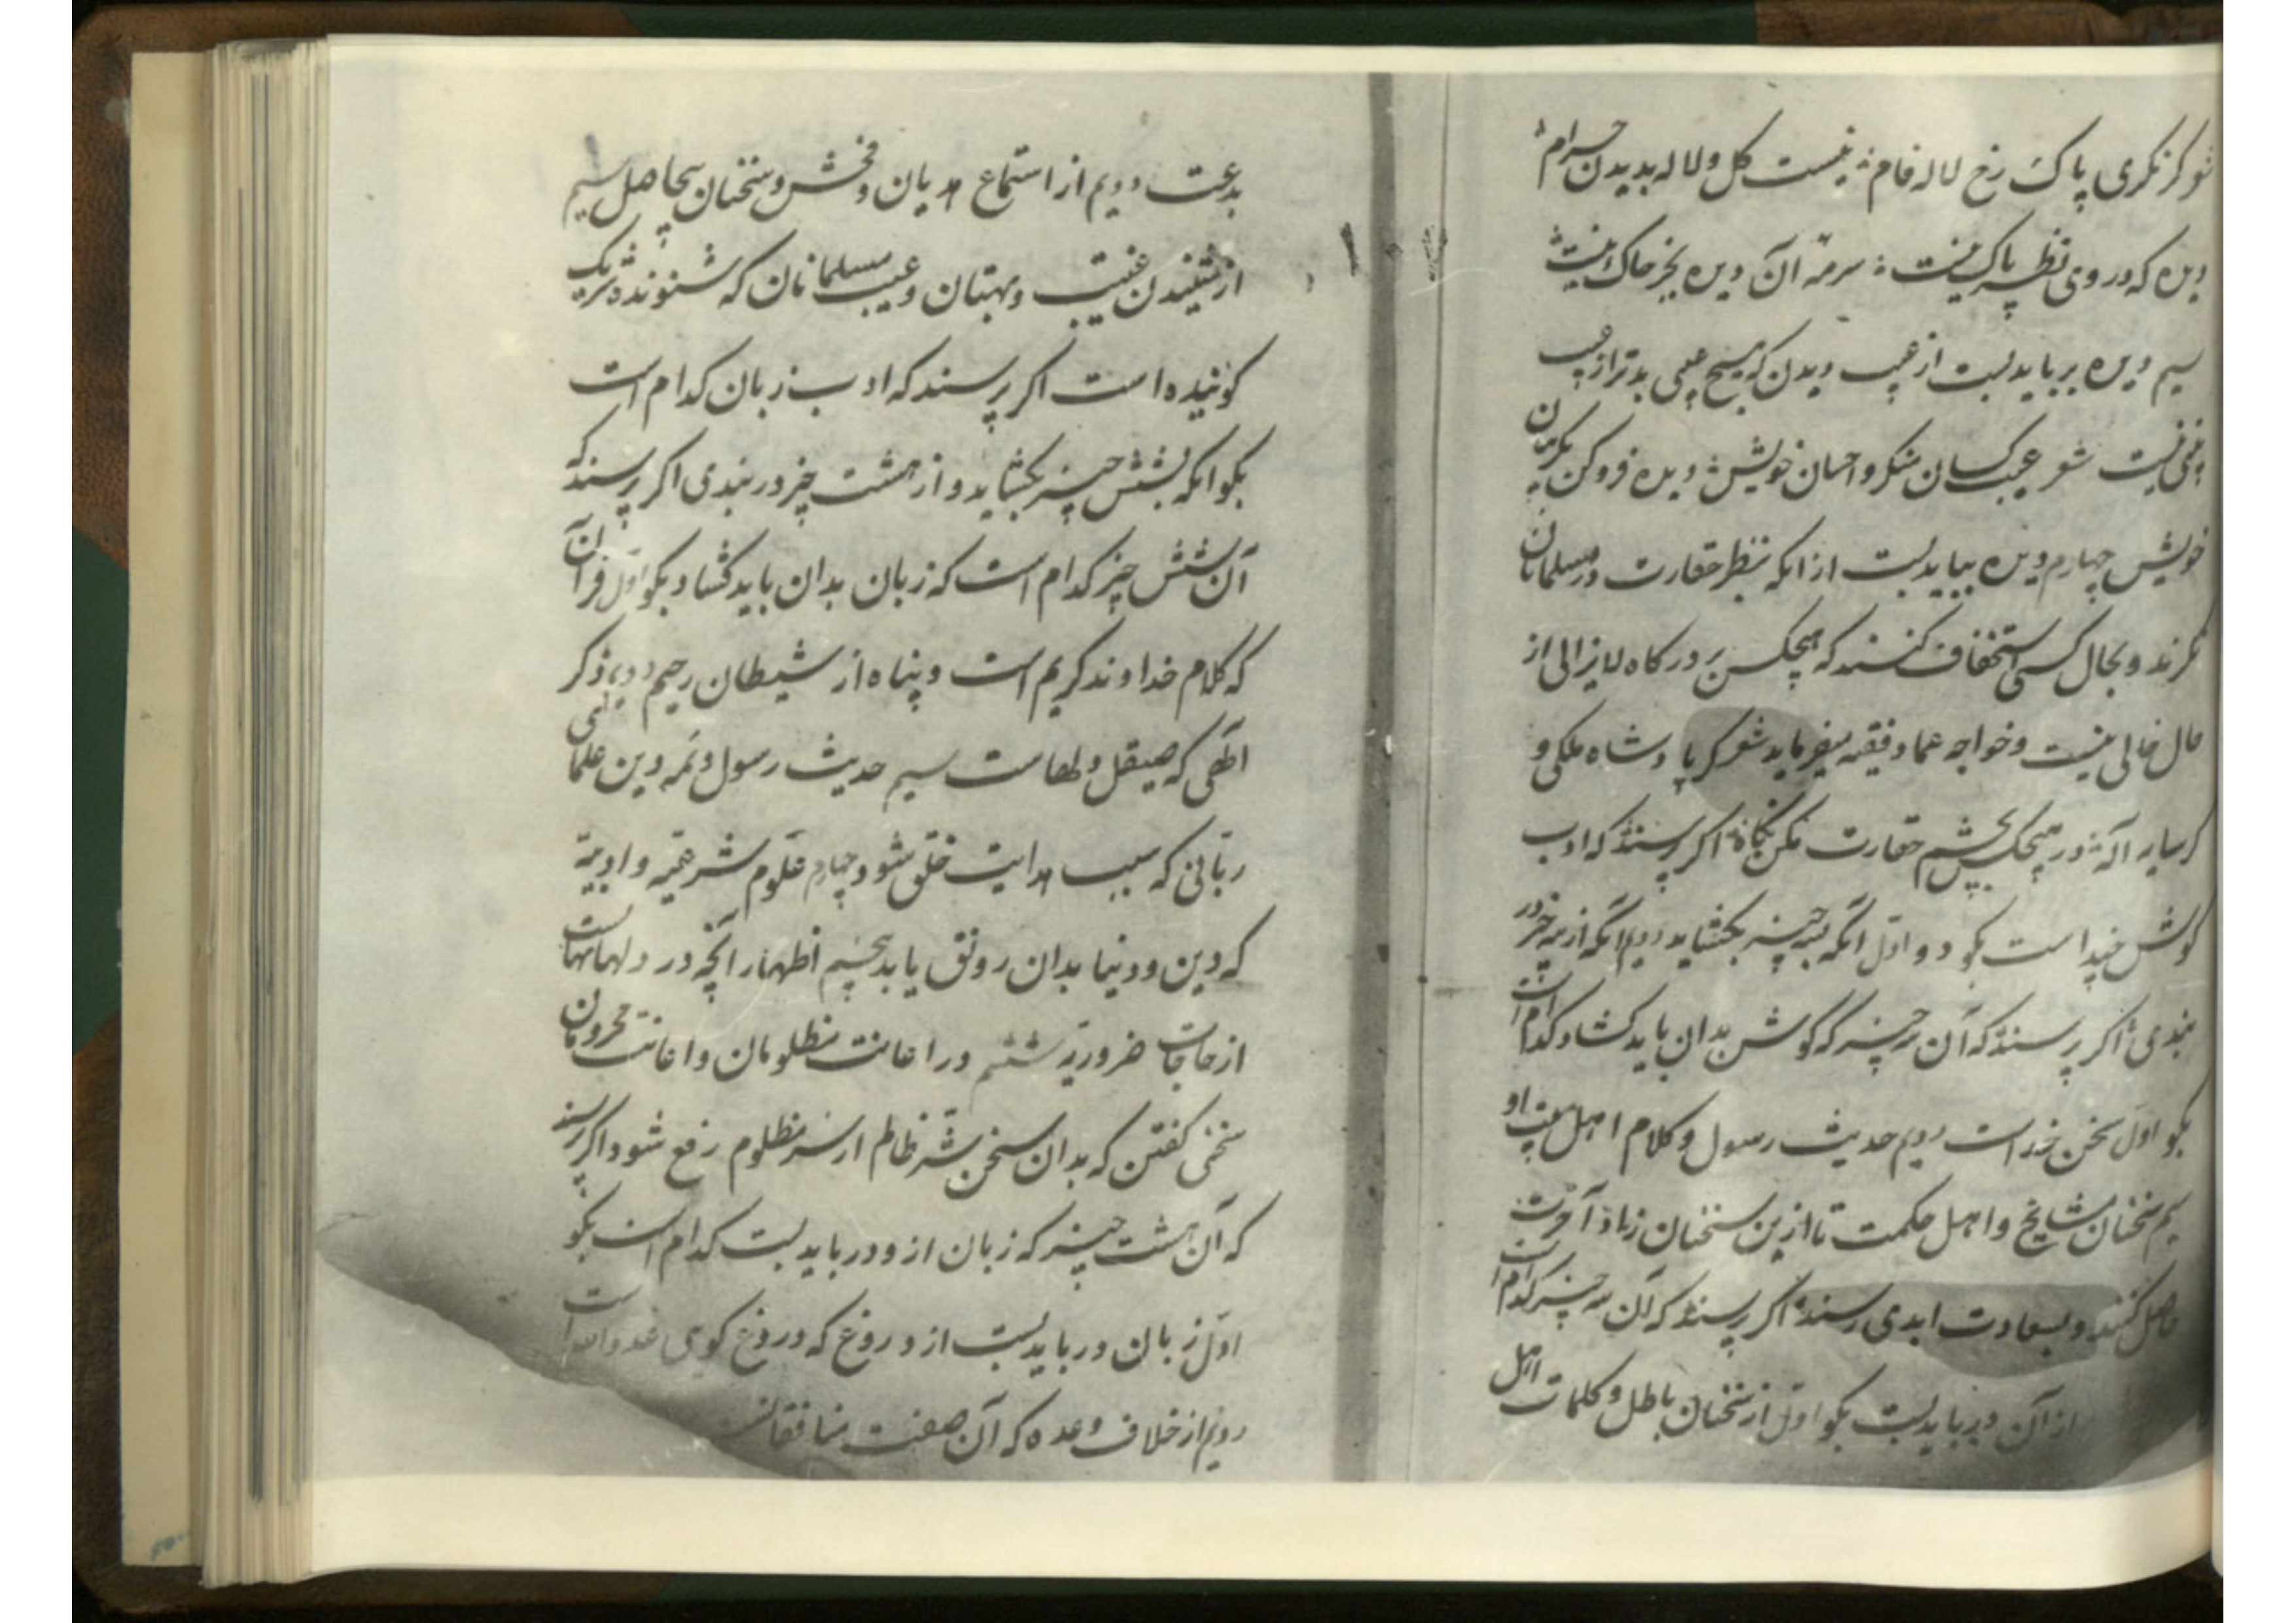 شو کرنکری پاک رخ لاله فام نیست کل و لاله بدیدن حرام
دیده که در وی نظر پاک نیست سرمهٔ آن دیده بجز خاک نیست
سیم دیده بر باید بست از عیب دیدن که هیچ عیبی بدتر از عیب
بینی نیست شعر عیب کسان منکر و احسان خویش دیده فرو کن بکریبان
خویش چهارم دیده بباید بست از انکه بنظر حقارت در مسلمانان
نکرند و بحال کسی استخفاف کنند که هیچکس بر درکاه لایزالی از
حال خالی نیست و خواجه عماد فقیه میفرماید شعر کر پادشاه ملکی و
کر سایه اله در هیچکس بچشم حقارت مکن نکاه اکر پرسند که ادب
کوش چند است بکو دو اول انکه بسه چیز بکشاید دویم انکه از سه چیز در
بندی اکر پرسند که آن سه چیز که کوش بدان باید کشاد کدام است
بکو اول سخن خداست دویم حدیث رسول و کلام اهل بیت او
سیم سخنان مشایخ و اهل حکمت تا ازین سخنان زاد آخرت
حاصل کنند و بسعادت ابدی رسند اکر پرسند که آن سه چیز کدام است
از آن در باید بست بکو اول از سخنان باطل و کلمات اهل
بدعت دویم از استماع هدیان و فحش و سخنان بیحاصل سیم
از شنیدن غیبت و بهتان و عیب مسلمانان که شنونده شریک
کوینده است اکر پرسند که ادب زبان کدام است
بکو انکه بشش چیز بکشاید و از هشت چیز در بندی اکر پرسند که
آن شش چیز کدام است که زبان بدان باید کشاد بکو اول قرآن
که کلام خداوند کریم است و پناه از شیطان رجیم دویم ذکر
الهی که صیقل دلهاست سیم حدیث رسول و ائمه دین علمای
ربانی که سبب هدایت خلق شود چهارم علوم شرعیه و ادبیه
که دین و دنیا بدان رونق یابد پنجم اظهار آنچه در دلهاست
از حاجات ضروریه ششم در اعانت مظلومان و اعانت محرومان
سخنی کفتن که بدان سخن شر ظالم از سر مظلوم رفع شود اکر پرسند
که آن هشت چیز که زبان ازو در باید بست کدام است بکو
اول زبان در باید بست از دروغ که دروغ کوی عدو الله است
دویم از خلاف وعده که آن صفت منافقانست